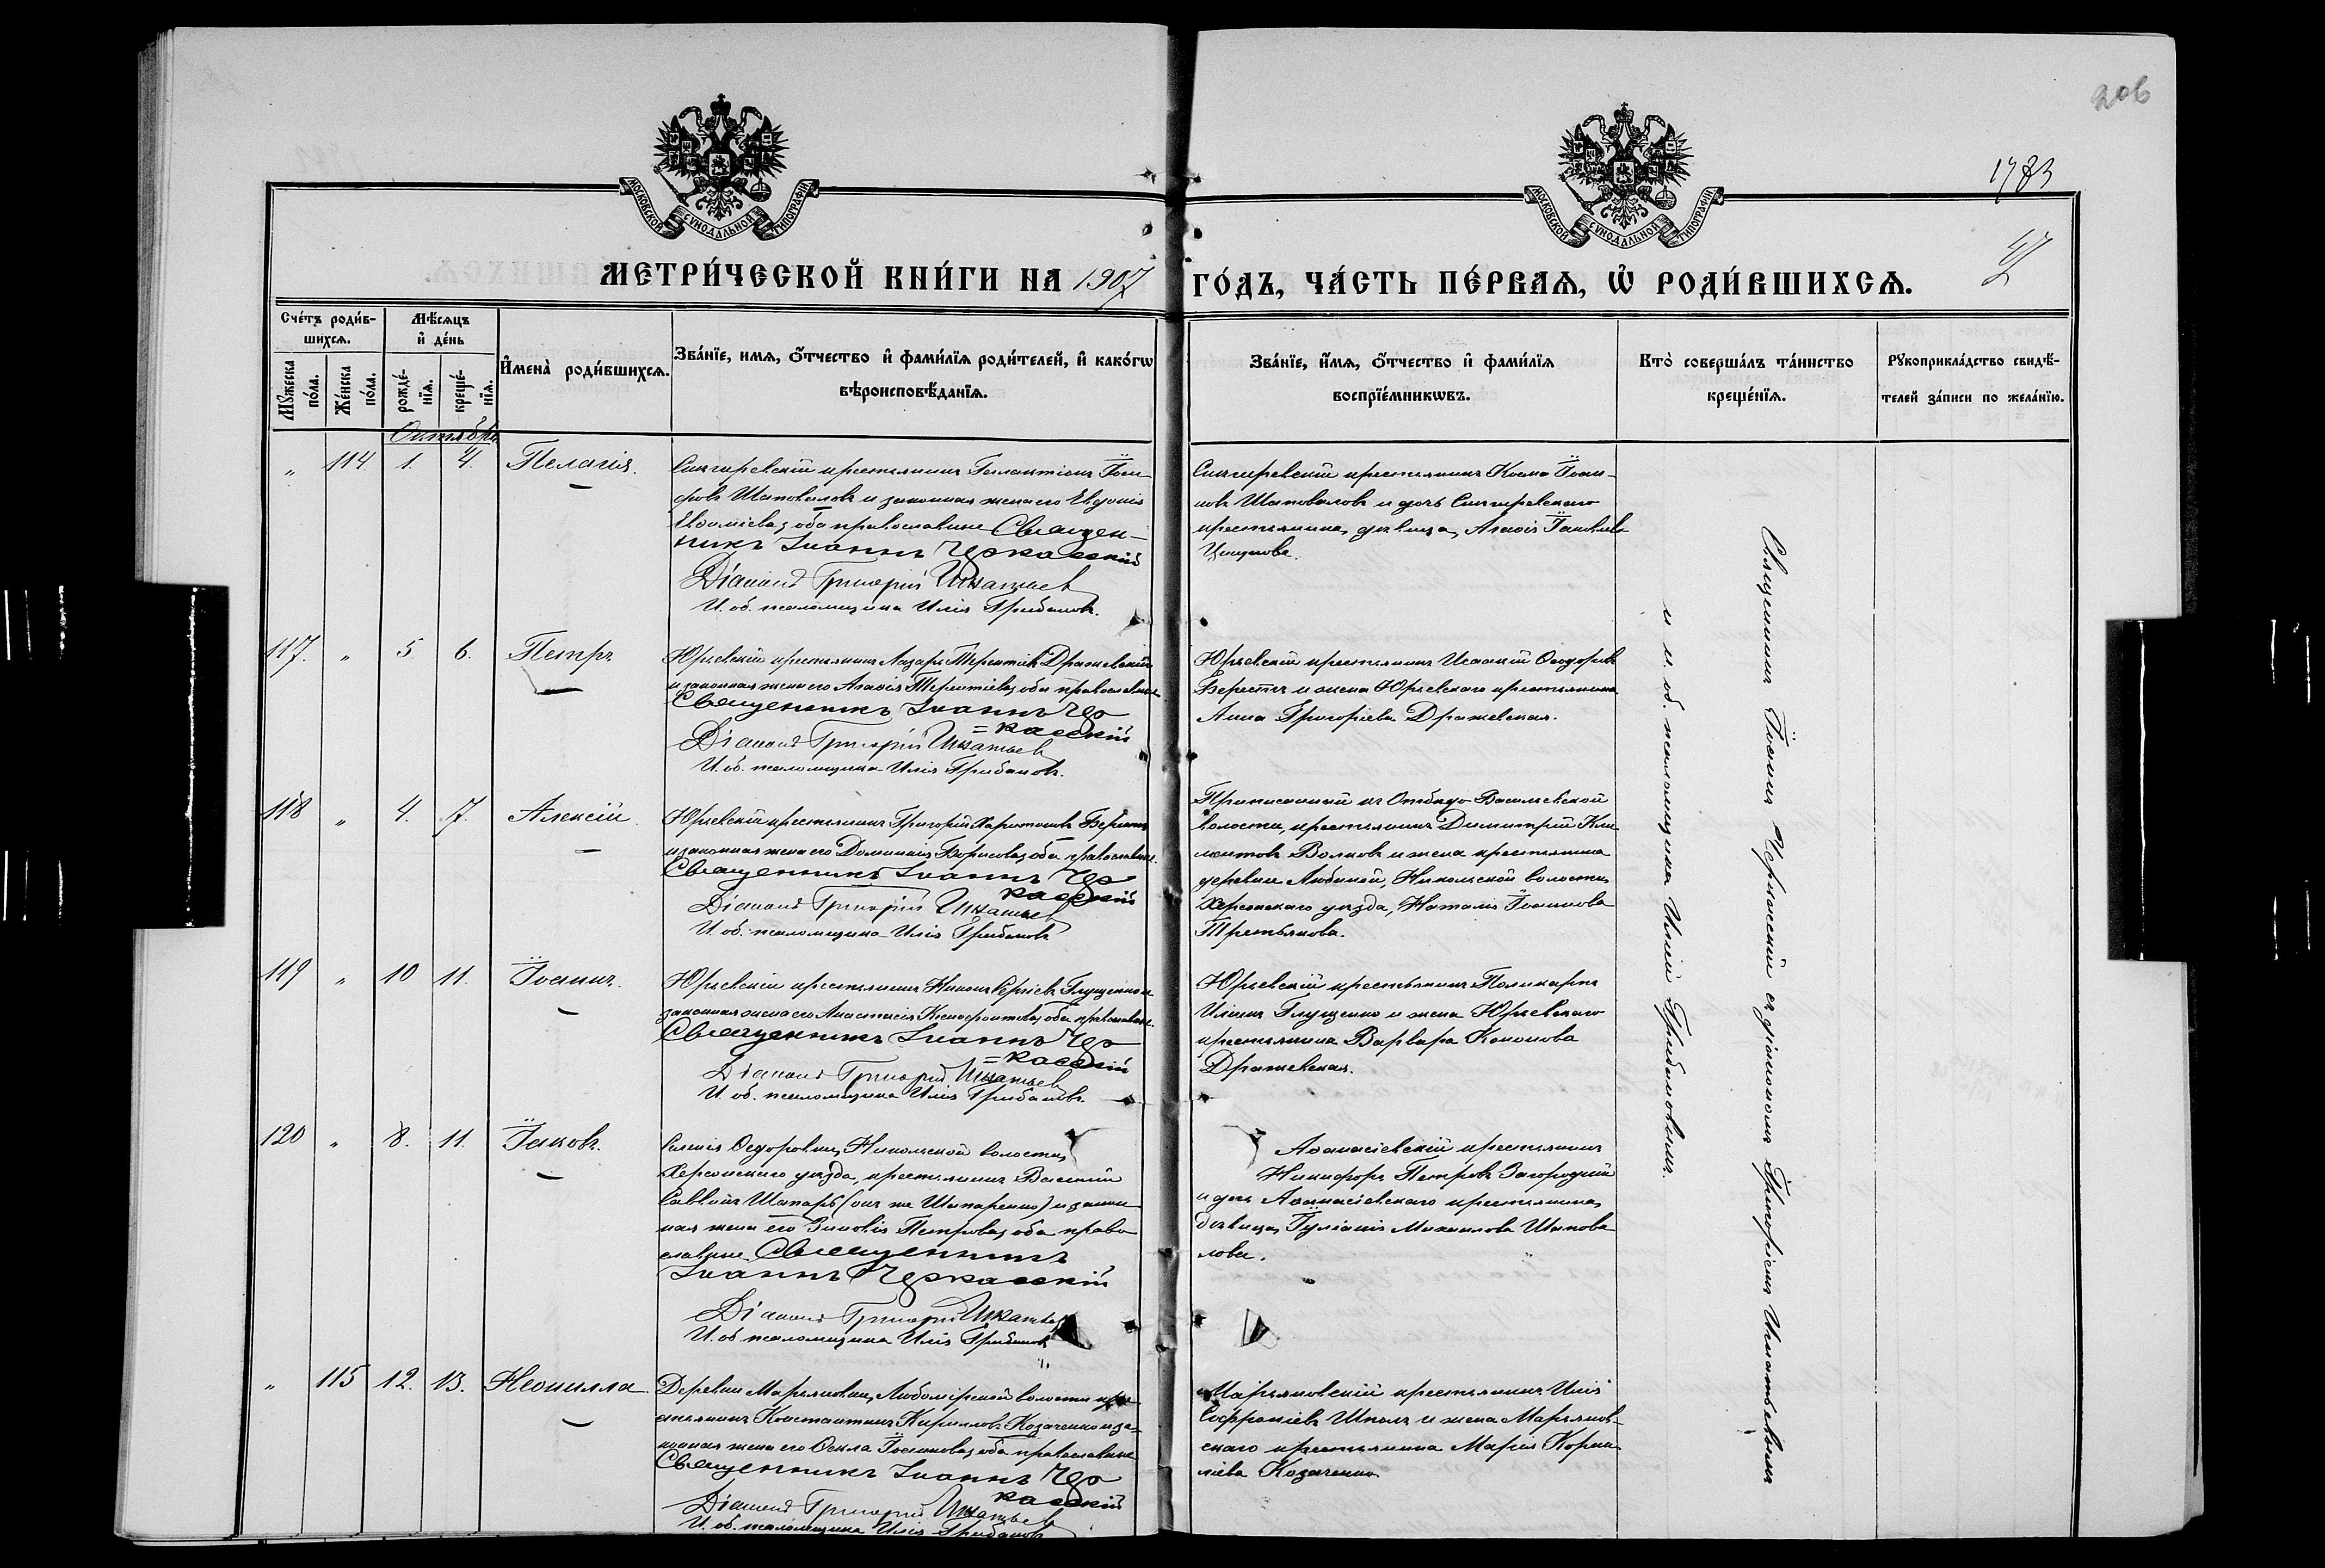 906
1783
47
МОСКОВСКОЙ СѴНОДАЛЬНОЙ ТИПОГРАФІИ
МОСКОВСКОЙ СѴНОДАЛЬНОЙ ТИПОГРАФІИ
МЕТРИ́ЧЕСКОЙ КНИ́ГИ НА 1907 ГО́ДЪ, ЧА́СТЬ ПЕ́РВАѦ, Ѽ РОДИ́ВШИХСѦ.
Сче́тъ роди́в-
шихсѧ.
Мꙋ́жеска по́ла.
Же́нска по́ла.
Мѣ́сѧцъ
и҆ де́нь
рожде́-
нїѧ.
креще́-
нїѧ.
И҆мена̀ роди́вшихсѧ.
Зва́нїе, имѧ, ѻ҆́тчество и҆ фами́лїѧ роди́телей, и҆ како́гѡ
вѣроисповѣ́данїѧ.
Зва́нїе, и҆́мѧ, ѻ҆́тчество и҆ фами́лїѧ
воспрїе́мникѡвъ.
Кто̀ соверша́лъ та́инство
креще́нїѧ.
Рꙋкоприкла́дство свидѣ́-
телей за́писи по жела́нїю.
Октябрь
" 114. 1. 4. Пелагія.
Снигиревскій крестьянинъ Галактіонъ Іоси-
фовъ Шаповаловъ и законная жена его Евдокія
Евѳиміева, оба православные Священ-
никъ Іоаннъ Черкасскій
Діаконъ Григорій Игнатьев
И. об. псаломщика Илія Грибановъ.
Снигиревскій крестьянинъ Косма Іоан-
новъ Шаповаловъ и дочь Снигиревскаго
крестьянина, дѣвица, Агаѳія Іаковлева
117. " 5 6. Петръ
Юрьевскій крестьянинъ Лазарь Терентіевъ Дражевскій
и законная жена его Агаѳія Терентіева, оба православные
Священникъ Іоаннъ Чер
=касскій
Діаконъ Григорій Игнатьев
И. об. псаломщика Илія Грибановъ.
Юрьевскій крестьянинъ Исаакій Ѳеодоровъ
Берестъ и жена Юрьевскаго крестьянина
Анна Григоріева Дражевская.
118 " 4. 7. Алексій
Юрьевскій крестьянинъ Григорій Харитоновъ Берестъ
и законная жена его Домникія Борисова, оба православные.
Священникъ Іоаннъ Чер
касскій
Діаконъ Григорій Игнатьев
И. об. псаломщика Илія Грибановъ
Приписанный къ Отбѣдо-Васильевской
волости, крестьянинъ Димитрій Кли-
ментовъ Волковъ и жена крестьянина
деревни Любиной, Никольской волости,
Херсонскаго уѣзда, Наталія Іоаннова
Третьякова.
119 " 10 11. Іоаннъ.
Юрьевскій крестьянинъ Никонъ Сергіевъ Глущенко и
законная жена его Анастасія Ксенофонтова, оба православные.
Священникъ Іоаннъ Чер
=касскій
Діаконъ Григорій Игнатьев
И. об. псаломщика Илія Грибановъ.
Юрьевскій крестьянинъ Поликарпъ
Иліинъ Глущенко и жена Юрьевскаго
крестьянина Варвара Кононова
Дражевская.
120 " 8. 11. Іаковъ.
Селенія Ѳедоровки, Никольской волости,
Херсонскаго уѣзда, крестьянинъ Василій
Саввинъ Шапарь (онъ же Шапаренко) и закон-
ная жена его Зиновія Петрова, оба право-
славные. Священникъ
Іоаннъ Черкасскій
Діаконъ Григорій Игнатьев
И. об. псаломщика Илія Грибановъ
Аѳанасіевскій крестьянинъ
Никифоръ Петровъ Загородній
и дочь Аѳанасіевскаго крестьянина,
дѣвица, Іуліанія Михаилова Шапова-
лова.
" 115 12. 13. Неонилла
Деревни Марьяновки, Любомірской волости кре-
стьянинъ Константинъ Кирилловъ Козаченко и за-
конная жена его Ѳекла Іоаннова, оба православные
Священникъ Іоаннъ Чер
касскій
Діаконъ Григорій Игнатьев
И. об. псаломщика Илія Грибановъ
Марьяновскій крестьянинъ Илія
Софроніевъ Шполъ и жена Марьянов-
скаго крестьянина Марія Корни-
ліева Козаченко.
Священникъ Іоаннъ Черкасскій съ діакономъ Григоріемъ Игнатьевымъ
и и. об. псаломщика Иліей Грибановымъ.